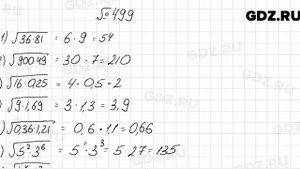 № 499
GDZ.RU
1) √36·81 = 6·9 = 54
) √900·49 = 30·7 = 210
) √16·0,25 = 4·0,5 = 2
) √9·1,69 = 3·1,3 = 3,9
) √0,36·1,21 = 0,6·11 = 0,66
) √5²·3⁶ = 5¹·3³ = 5·27 = 135